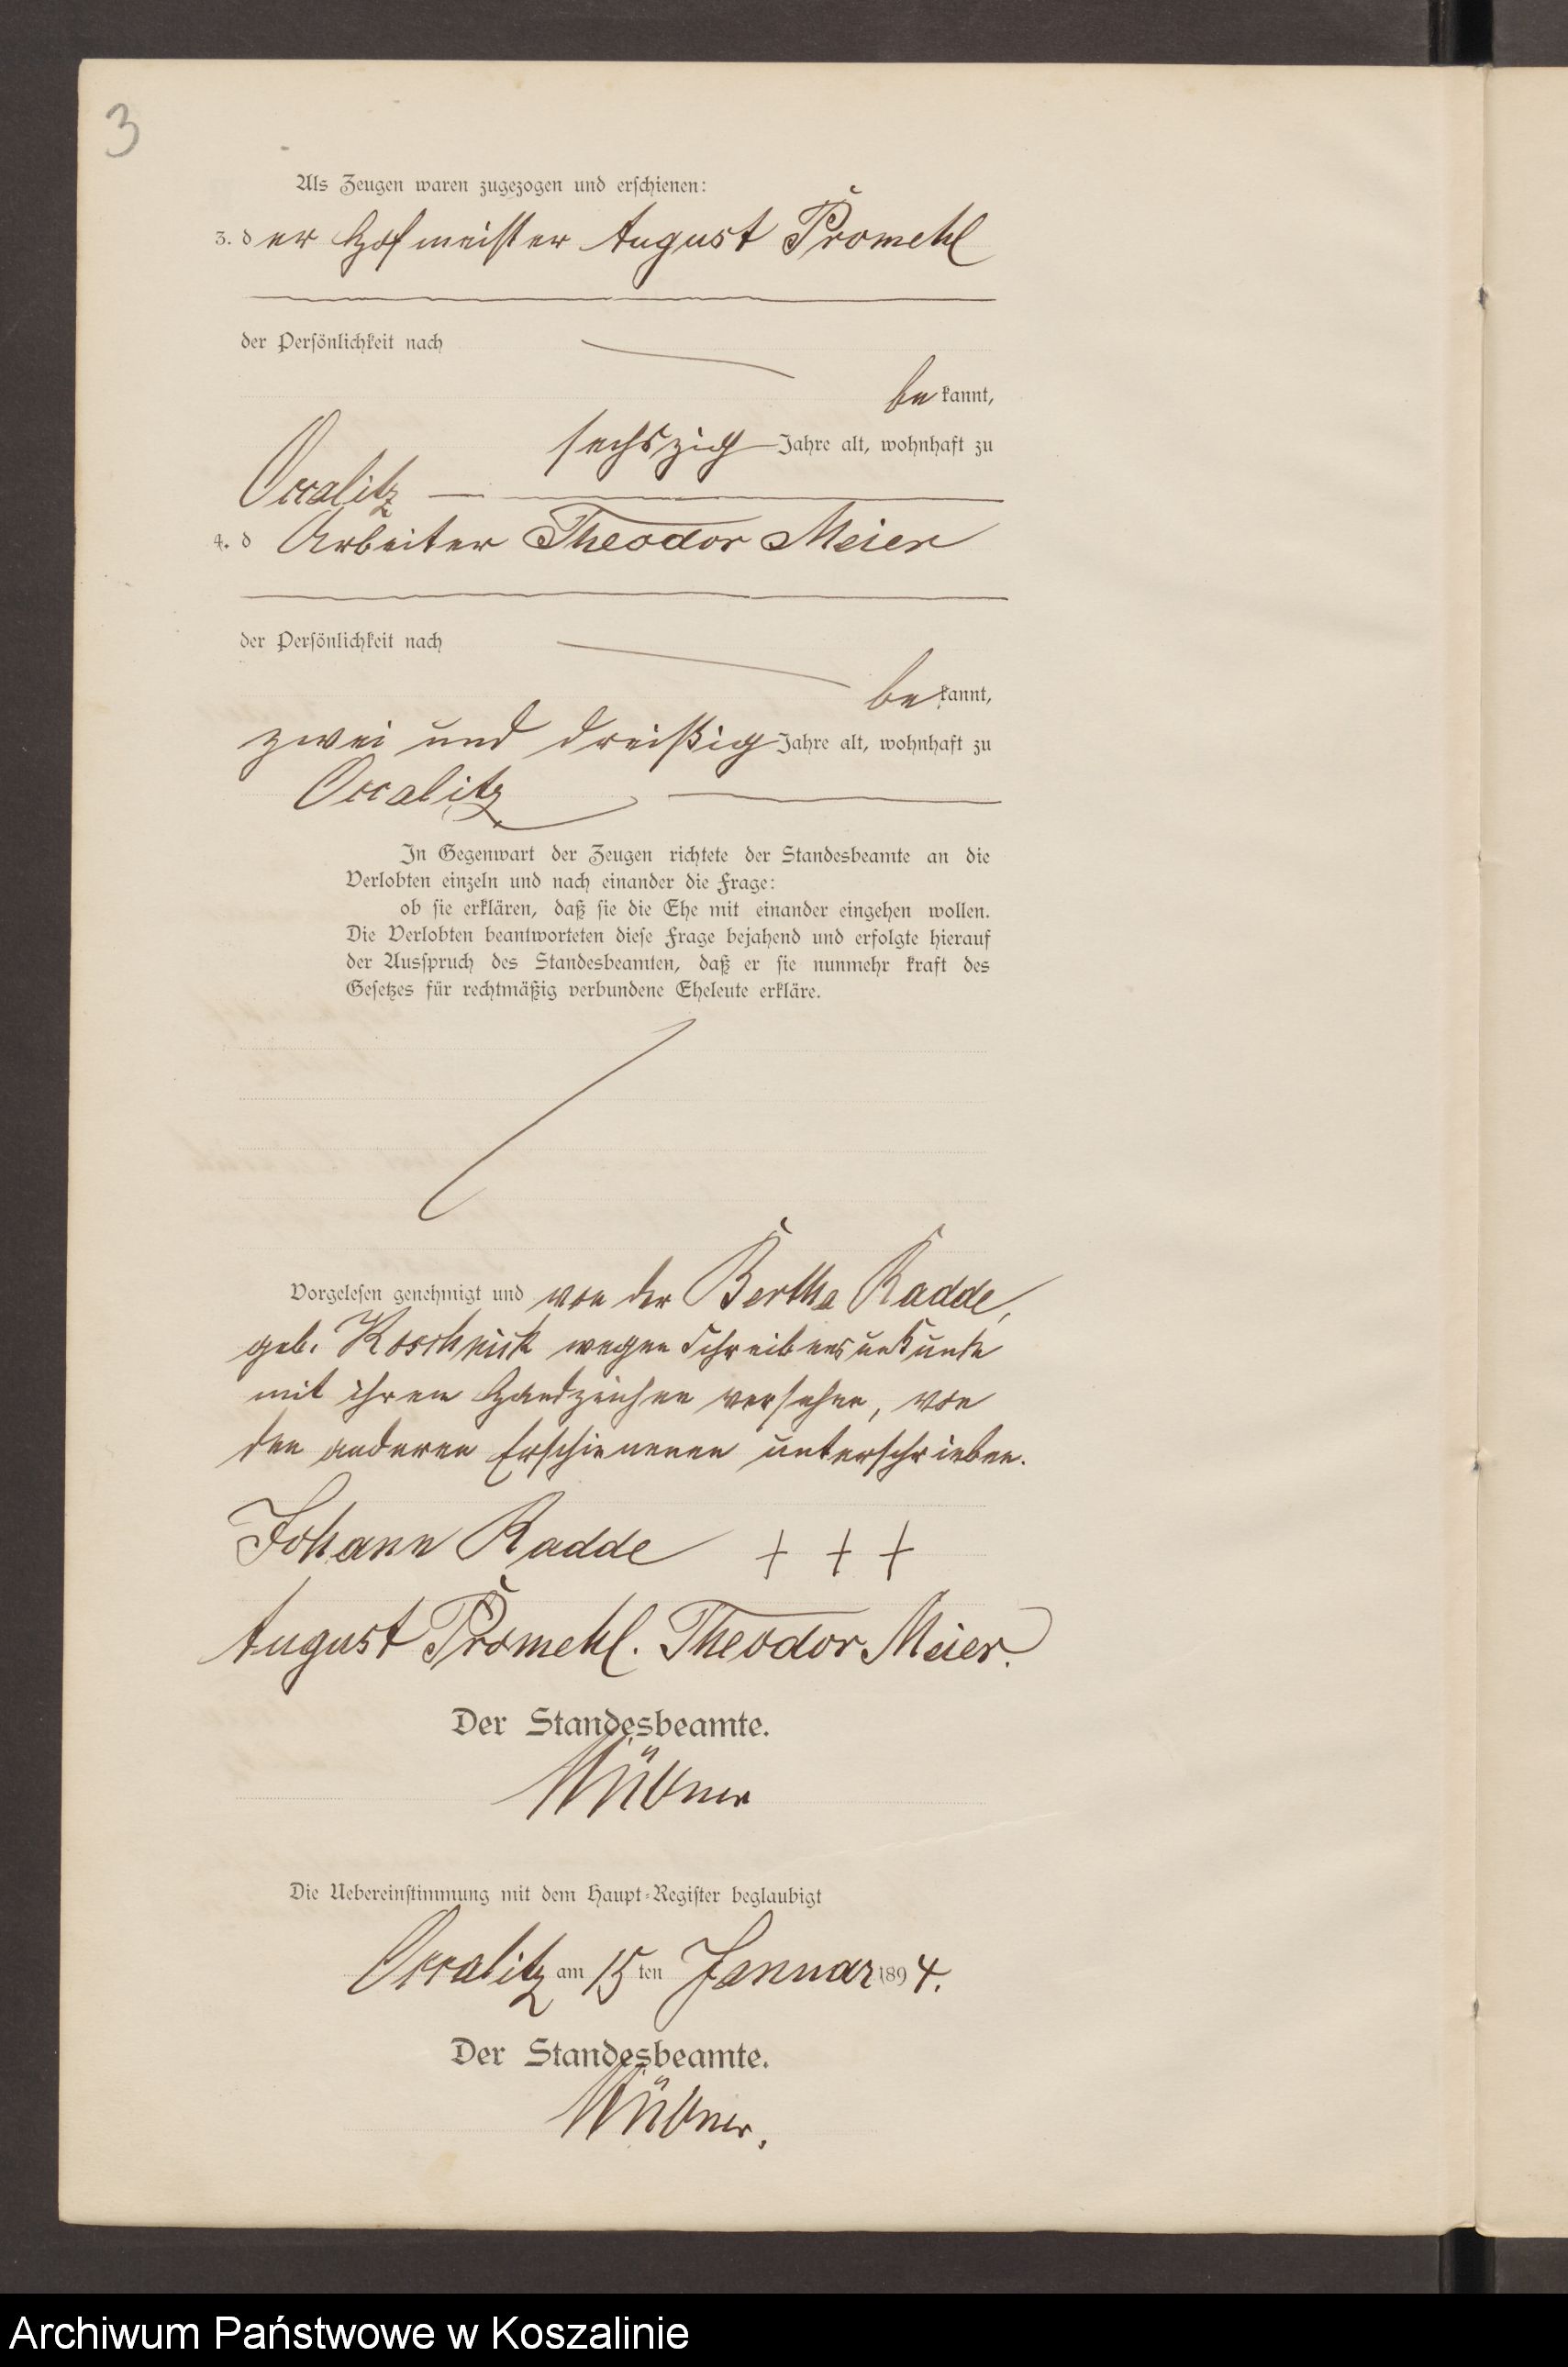 3
Als Zeugen waren zugezogen und erschienen:
3. der Hofmeister August Promehl
der Persönlichkeit nach
be kannt,
sechszig Jahre alt, wohnhaft zu
Occalitz
4. d Arbeiter Theodor Meier
der Persönlichkeit nach
be kannt,
zwei und dreißig Jahre alt, wohnhaft zu
Occalitz
In Gegenwart der Zeugen richtete der Standesbeamte an die
Verlobten einzeln und nach einander die Frage:
ob sie erklären, daß sie die Ehe mit einander eingehen wollen.
Die Verlobten beantworteten diese Frage bejahend und erfolgte hierauf
der Ausspruch des Standesbeamten, daß er sie nunmehr kraft des
Gesetzes für rechtmäßig verbundene Eheleute erkläre.
Vorgelesen genehmigt und von der Bertha Radde,
geb. Koschnick wegen Schreibensunkunde
mit ihren Handzeichen versehen, von
den anderen Erschienenen unterschrieben.
Johann Radde + + +
August Promehl. Theodor Meier.
Der Standesbeamte.
Die Uebereinstimmung mit dem Haupt-Register beglaubigt
Occalitz am 15 ten Januar 1894.
Der Standesbeamte.
Archiwum Państwowe w Koszalinie